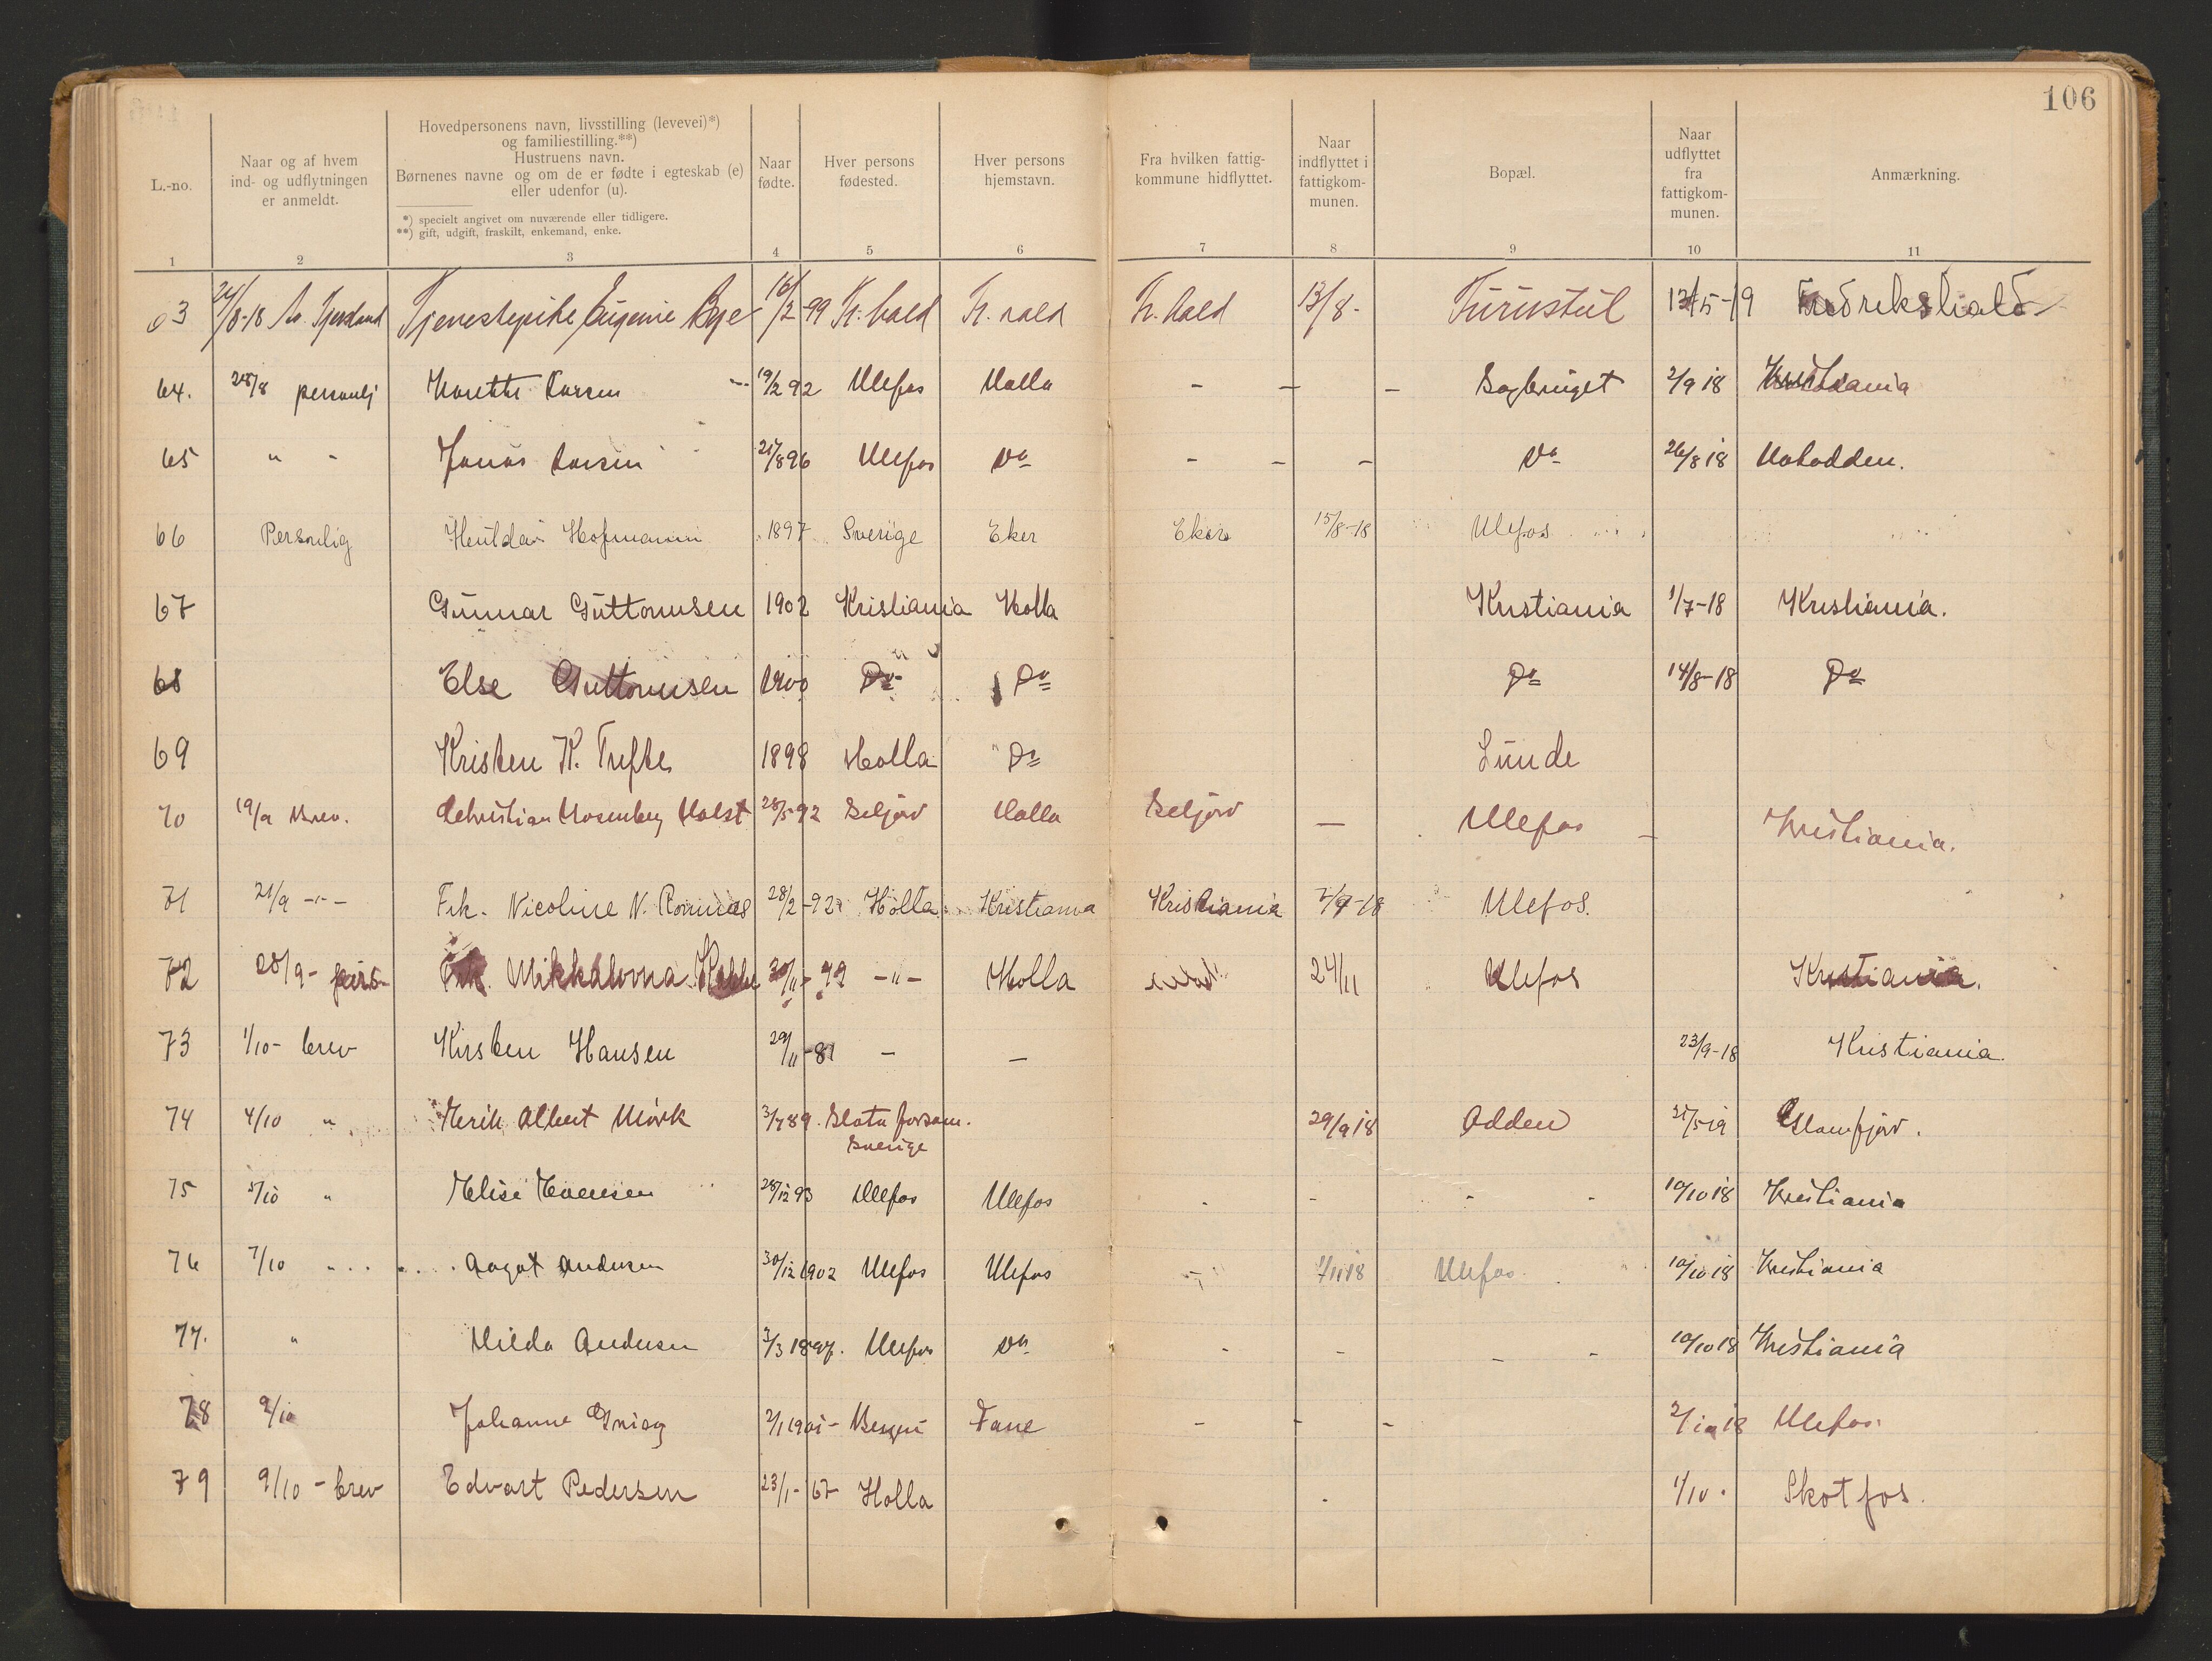 106
L.-no.
Naar og af hvem
ind- og udflytningen
er anmeldt.
Hovedpersonens navn, livsstilling (levevei)*)
og familiestilling.**)
Hustruens navn.
Børnenes navne og om de er fødte i egteskab (e)
eller udenfor (u).
*) specielt angivet om nuværende eller tidligere.
**) gift, udgift, fraskilt, enkemand, enke.
Naar
fødte.
Hver persons
fødested.
Hver persons
hjemstavn.
Fra hvilken fattig-
kommune hidflyttet.
Naar
indflyttet i
fattigkom-
munen.
Bopæl.
Naar
udflyttet
fra
fattigkom-
munen.
Anmærkning.
1 2 3 4 5 6 7 8 9 10 11
63 Tjenestepike Eugenie Bye 16/2-99 Fr. hald Fr. hald Fr. hald 13/8- Furustul 13/5-19 Fredrikshald
64. 28/8 personlj Larsen 19/2 92 Ulefos Holla - - - Sagbruget 2/9 18 Kristiania
65 " - Jonas Larsen 21/8 96 Ulefos Do - - - Do 26/8 18 Notodden.
66 Personlig Hulda Hofmann 1897 Sverige Eker Eker 15/8-18 Ulefos
67 Gunnar Guttormsen 1902 Kristiania Holla Kristiania 1/7-18 Kristiania.
68 Else Guttormsen 1900 Do Do Do 14/8-18 Do
69 Kristen K. Tufte 1898 Holla Do Lunde
70 19/9 brev. Christian Rosenberg Holst 28/5-92 Seljord Holla Seljord - Ulefos - Kristiania.
71 21/9 -"- Frk. Nicoline N. Romnes 28/2-92 Holla Kristiania Kristiania 7/9-18 Ulefos.
72 28/9- pers. Frk. 30/11-99 -"- Holla 24/11 Ulefos Kristiania.
73 1/10- brev Kirsten Hansen 29/11-81 - - 23/9-18 Kristiania.
74 4/10 " Albert Mörk 3/7 89. Slata forsam. 29/9 18 Odden 21/5 19 Glomfjord.
Sverige
75 5/10 " Elise Evensen 28/12 93 Ulefos Ulefos - - - - 10/10 18 Kristiania
76 7/10 " Aagot Andersen 30/12 1902 Ulefos Ulefos - 1/11 18 Ulefos 10/10 18 Kristiania
77. " Hilda Andersen 7/3 1897. Ulefos Do - - - - 10/10 18 Kristiania
78 9/10 Johanne Grieg 2/1 1901- Bergen Fane - - - 2/10 18 Ulefos.
79 9/10 - brev Edvart Pedersen 23/1-67 Holla 1/10. Skotfos.